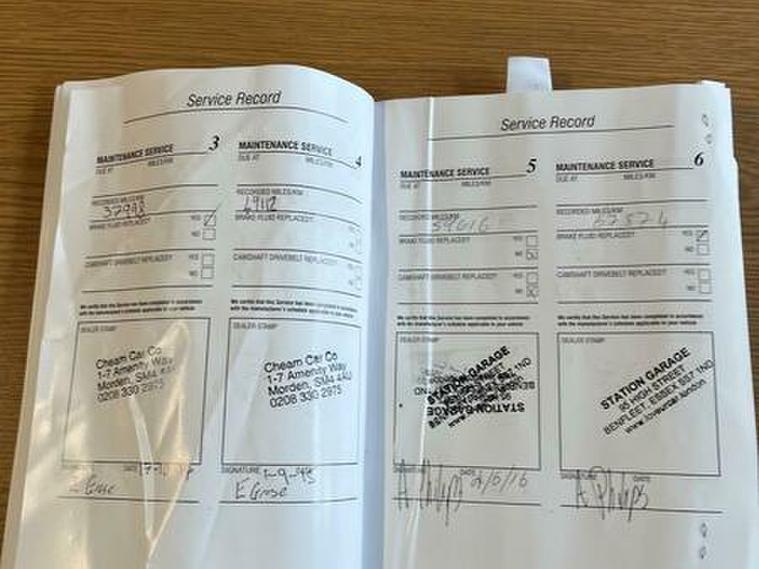 Service Record
MAINTENANCE SERVICE 3
DUE AT MILES/KM
RECORDED MILES/KM
37998
BRAKE FLUID REPLACED? YES
NO
CAMSHAFT DRIVEBELT REPLACED? YES
NO
We certify that this Service has been completed in accordance
with the manufacturer's schedule applicable to your vehicle
DEALER STAMP
Cheam Car Co
1-7 Amenity Way
Morden, SM4
0208 330 2975
DATE
E Grose
MAINTENANCE SERVICE 4
DUE AT MILES/KM
RECORDED MILES/KM
BRAKE FLUID REPLACED?
CAMSHAFT DRIVEBELT REPLACED?
We certify that this Service has been completed in accordance
with the manufacturer's schedule applicable to your vehicle
DEALER STAMP
Cheam Car Co
1-7 Amenity Way
Morden, SM4 4AU
0208 330 2975
SIGNATURE
E Grose
Service Record
MAINTENANCE SERVICE 5
DUE AT MILES/KM
RECORDED MILES/KM
59616
BRAKE FLUID REPLACED? YES
NO
CAMSHAFT DRIVEBELT REPLACED? YES
NO
We certify that this Service has been completed in accordance
with the manufacturer's schedule applicable to your vehicle
DEALER STAMP
STATION GARAGE
SIGNATURE DATE
A Philips 2/6/16
MAINTENANCE SERVICE 6
DUE AT MILES/KM
RECORDED MILES/KM
67574
BRAKE FLUID REPLACED? YES
NO
CAMSHAFT DRIVEBELT REPLACED? YES
NO
We certify that this Service has been completed in accordance
with the manufacturer's schedule applicable to your vehicle
DEALER STAMP
STATION GARAGE
95 HIGH STREET
BENFLEET, ESSEX SS7 1ND
www.loveurcar.london
SIGNATURE DATE
A Philips